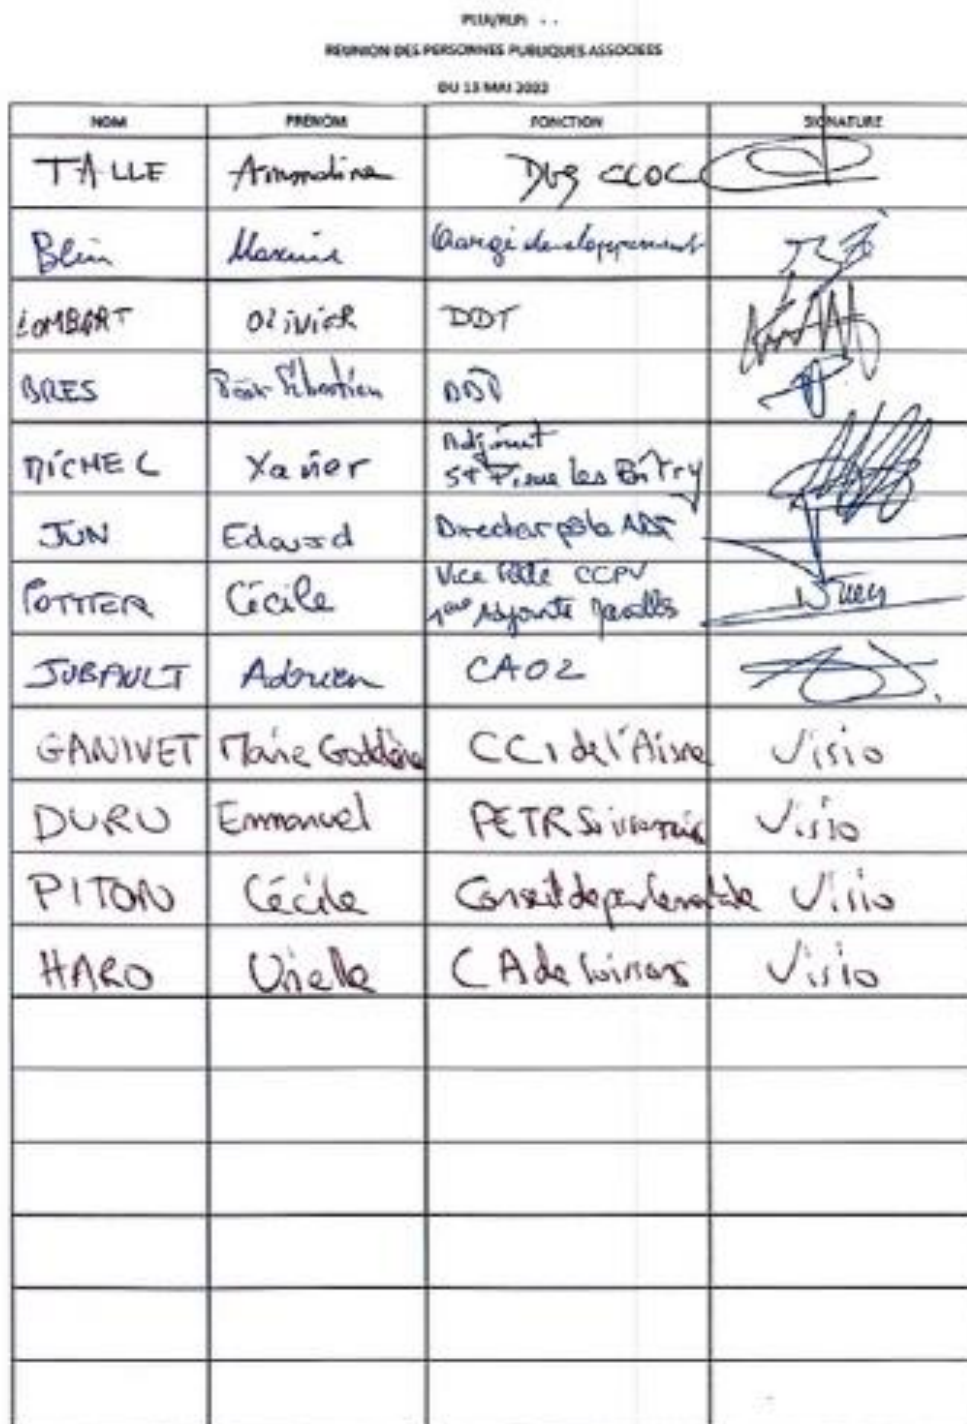 PLUI/RLPI
REUNION DES PERSONNES PUBLIQUES ASSOCIEES
DU 13 MAI 2022
NOM PRENOM FONCTION SIGNATURE
TALLE Ammndine CCOC
Blin Maxime Chargé developpement
LOMBART Olivier DDT
BRES DDT
MICHEL Xavier Adjoint
St Pierre les
JUN Edouard Directeur pôle ADT
POTTIER Cécile Vice CCPV
Adjointe
JUBAULT Adrien CAO2
GANIVET Marie CCI de l'Aisne Visio
DURU Emmanuel PETR Soissonnais Visio
PITON Cécile Conseil departemental de Visio
HARO Urielle CA de Visio